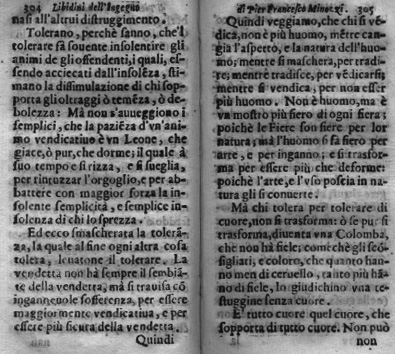 304 Libidini dell'Ingegno
nasi all'altrui distruggimento.
Tolerano, perchè sanno, che'l
tolerare fà souente insolentire gli
animi de gli offendenti, i quali, es-
sendo acciecati dall'insolẽza, sti-
mano la dissimulazione di chi sop-
porta gli oltraggi ò temẽza, ò de-
bolezza: Mà non s'auueggiono i
semplici, che la paziẽza d'vn'ani-
mo vendicatiuo è vn Leone, che
giace, ò pur, che dorme; il quale à
suo tempo e si rizza, e si sueglia,
per rintuzzar l'orgoglio, e per ab-
battere con maggior forza la in-
solente semplicità, e semplice in-
solenza di chi lo sprezza.
Ed ecco smascherata la tolerã-
za, la quale al fine ogni altra cosa
tolera, leuatone il tolerare. La
vendetta non hà sempre il sembiã-
te della vendetta, mà si trauisa cõ
ingannevole sofferenza, per essere
maggiormente vendicatiua, e per
essere più sicura della vendetta.
Quindi
di Pier Francesco Minozzi. 305
Quindi veggiamo, che chi si vẽ-
dica, non è più huomo, mẽtre can-
gia l'aspetto, e la natura dell'huo-
mo; mentre si maschera, per tradi-
re; mentre tradisce, per vẽdicarsi;
mentre si vendica, per non esser
più huomo. Non è huomo, ma è
vn mostro più fiero di ogni fiera;
poichè le Fiere son fiere per lor
natura; mà l'huomo si fà fiero per
arte, e per inganno; e si trasfor-
ma per essere più che deforme:
poichè l'arte, e l'vso poscia in na-
tura gli si conuerte.
Mà chi tolera per tolerare di
cuore, non si trasforma: ò se pur si
trasforma, diuenta vna Colomba,
che non hà fiele; comechè gli scõ-
sigliati, e coloro, che quanto han-
no men di ceruello, tanto più hã-
no di fiele, lo giudichino vna te-
stuggine senza cuore.
E' tutto cuore quel cuore, che
sopporta di tutto cuore. Non può
non